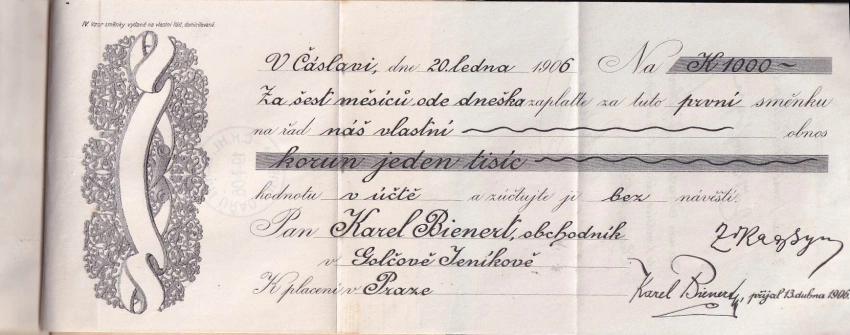 IV. Vzor směnky vydané na vlastní řád, domicilované.
V Čáslavi, dne 20. ledna 1906 Na K 1000~
Za šest měsíců ode dneška zaplaťte za tuto první směnku
na řad náš vlastní obnos
korun jeden tisíc
hodnotu v účtě a zúčtujte ji bez návěští.
Pan Karel Bienert, obchodník
v Golčově Jeníkově
K placení v Praze
Karel Bienert, přijal 13. dubna 1906.